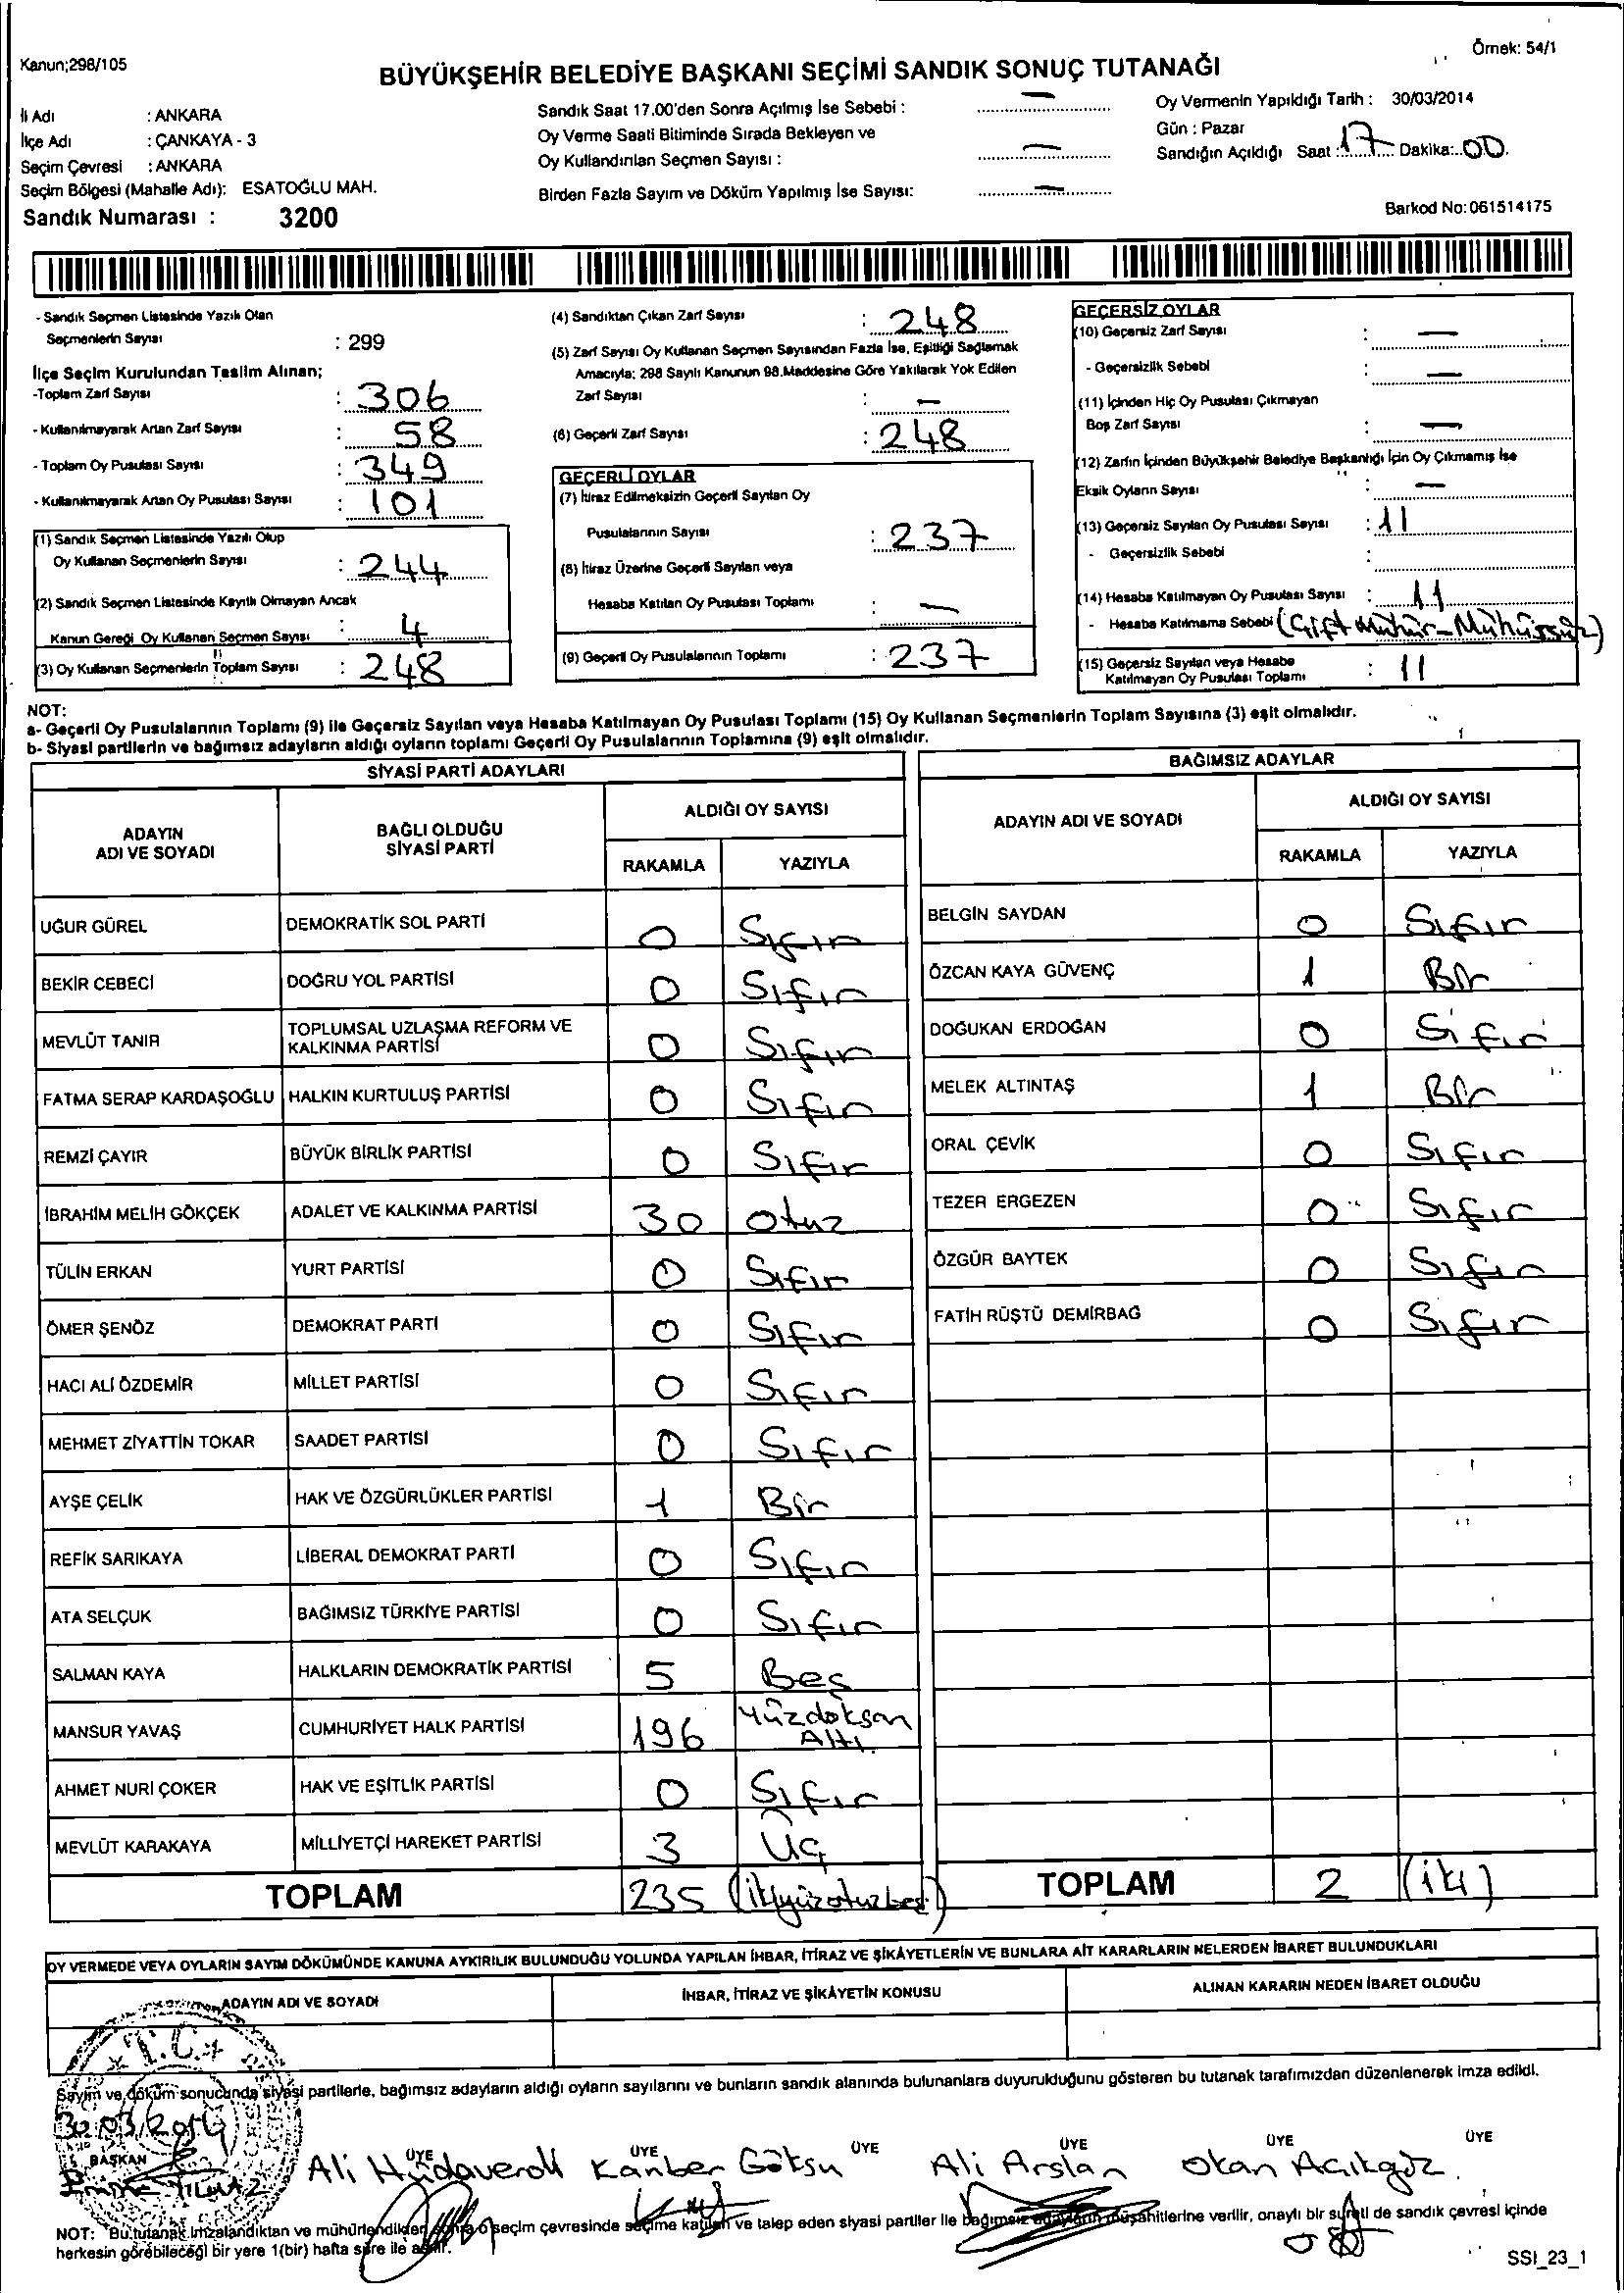 Kanun;298/105
Örnek: 54/1
BÜYÜKŞEHİR BELEDİYE BAŞKANI SEÇİMİ SANDIK SONUÇ TUTANAĞI
İli Adı : ANKARA
İlçe Adı : ÇANKAYA - 3
Seçim Çevresi : ANKARA
Seçim Bölgesi (Mahalle Adı): ESATOĞLU MAH.
Sandık Numarası : 3200
Sandık Saat 17.00'den Sonra Açılmış İse Sebebi : —
Oy Verme Saati Bitiminde Sırada Bekleyen ve
Oy Kullandırılan Seçmen Sayısı : —
Birden Fazla Sayım ve Döküm Yapılmış İse Sayısı: —
Oy Vermenin Yapıldığı Tarih : 30/03/2014
Gün : Pazar
Sandığın Açıldığı Saat : 17 Dakika: 00
Barkod No: 061514175
- Sandık Seçmen Listesinde Yazılı Olan
Seçmenlerin Sayısı : 299
İlçe Seçim Kurulundan Teslim Alınan;
-Toplam Zarf Sayısı : 306
- Kullanılmayarak Artan Zarf Sayısı : 58
- Toplam Oy Pusulası Sayısı : 349
- Kullanılmayarak Artan Oy Pusulası Sayısı : 101
(1) Sandık Seçmen Listesinde Yazılı Olup
Oy Kullanan Seçmenlerin Sayısı : 244
(2) Sandık Seçmen Listesinde Kayıtlı Olmayan Ancak
Kanun Gereği Oy Kullanan Seçmen Sayısı : 4
(3) Oy Kullanan Seçmenlerin Toplam Sayısı : 248
(4) Sandıktan Çıkan Zarf Sayısı : 248
(5) Zarf Sayısı Oy Kullanan Seçmen Sayısından Fazla İse, Eşitliği Sağlamak
Amacıyla; 298 Sayılı Kanunun 98.Maddesine Göre Yakılarak Yok Edilen
Zarf Sayısı : —
(6) Geçerli Zarf Sayısı : 248
GEÇERLİ OYLAR
(7) İtiraz Edilmeksizin Geçerli Sayılan Oy
Pusulalarının Sayısı : 237
(8) İtiraz Üzerine Geçerli Sayılan veya
Hesaba Katılan Oy Pusulası Toplamı : —
(9) Geçerli Oy Pusulalarının Toplamı : 237
GEÇERSİZ OYLAR
(10) Geçersiz Zarf Sayısı : —
- Geçersizlik Sebebi : —
(11) İçinden Hiç Oy Pusulası Çıkmayan
Boş Zarf Sayısı : —
(12) Zarfın İçinden Büyükşehir Belediye Başkanlığı İçin Oy Çıkmamış İse
Eksik Oyların Sayısı : —
(13) Geçersiz Sayılan Oy Pusulası Sayısı : 11
- Geçersizlik Sebebi :
(14) Hesaba Katılmayan Oy Pusulası Sayısı : 11
- Hesaba Katılmama Sebebi (Çift Mühür-Mühürsüz)
(15) Geçersiz Sayılan veya Hesaba
Katılmayan Oy Pusulası Toplamı : 11
NOT:
a- Geçerli Oy Pusulalarının Toplamı (9) ile Geçersiz Sayılan veya Hesaba Katılmayan Oy Pusulası Toplamı (15) Oy Kullanan Seçmenlerin Toplam Sayısına (3) eşit olmalıdır.
b- Siyasi partilerin ve bağımsız adayların aldığı oyların toplamı Geçerli Oy Pusulalarının Toplamına (9) eşit olmalıdır.
SİYASİ PARTİ ADAYLARI
ADAYIN ADI VE SOYADI BAĞLI OLDUĞU SİYASİ PARTİ ALDIĞI OY SAYISI
RAKAMLA YAZIYLA
UĞUR GÜREL DEMOKRATİK SOL PARTİ 0 Sıfır
BEKİR CEBECİ DOĞRU YOL PARTİSİ 0 Sıfır
MEVLÜT TANIR TOPLUMSAL UZLAŞMA REFORM VE KALKINMA PARTİSİ 0 Sıfır
FATMA SERAP KARDAŞOĞLU HALKIN KURTULUŞ PARTİSİ 0 Sıfır
REMZİ ÇAYIR BÜYÜK BİRLİK PARTİSİ 0 Sıfır
İBRAHİM MELİH GÖKÇEK ADALET VE KALKINMA PARTİSİ 30 Otuz
TÜLİN ERKAN YURT PARTİSİ 0 Sıfır
ÖMER ŞENÖZ DEMOKRAT PARTİ 0 Sıfır
HACI ALİ ÖZDEMİR MİLLET PARTİSİ 0 Sıfır
MEHMET ZİYATTİN TOKAR SAADET PARTİSİ 0 Sıfır
AYŞE ÇELİK HAK VE ÖZGÜRLÜKLER PARTİSİ 1 Bir
REFİK SARIKAYA LİBERAL DEMOKRAT PARTİ 0 Sıfır
ATA SELÇUK BAĞIMSIZ TÜRKİYE PARTİSİ 0 Sıfır
SALMAN KAYA HALKLARIN DEMOKRATİK PARTİSİ 5 Beş
MANSUR YAVAŞ CUMHURİYET HALK PARTİSİ 196 Yüzdoksan Altı
AHMET NURİ ÇOKER HAK VE EŞİTLİK PARTİSİ 0 Sıfır
MEVLÜT KARAKAYA MİLLİYETÇİ HAREKET PARTİSİ 3 Üç
TOPLAM 235 (İkiyüzotuzbeş)
BAĞIMSIZ ADAYLAR
ADAYIN ADI VE SOYADI ALDIĞI OY SAYISI
RAKAMLA YAZIYLA
BELGİN SAYDAN 0 Sıfır
ÖZCAN KAYA GÜVENÇ 1 Bir
DOĞUKAN ERDOĞAN 0 Sıfır
MELEK ALTINTAŞ 1 Bir
ORAL ÇEVİK 0 Sıfır
TEZER ERGEZEN 0 Sıfır
ÖZGÜR BAYTEK 0 Sıfır
FATİH RÜŞTÜ DEMİRBAĞ 0 Sıfır
TOPLAM 2 (iki)
OY VERMEDE VEYA OYLARIN SAYIM DÖKÜMÜNDE KANUNA AYKIRILIK BULUNDUĞU YOLUNDA YAPILAN İHBAR, İTİRAZ VE ŞİKÂYETLERİN VE BUNLARA AİT KARARLARIN NELERDEN İBARET BULUNDUKLARI
ADAYIN ADI VE SOYADI İHBAR, İTİRAZ VE ŞİKÂYETİN KONUSU ALINAN KARARIN NEDEN İBARET OLDUĞU
T.C.
Sayım ve döküm sonucunda siyasi partilerle, bağımsız adayların aldığı oyların sayılarını ve bunların sandık alanında bulunanlara duyurulduğunu gösteren bu tutanak tarafımızdan düzenlenerek imza edildi.
30/03/2014
BAŞKAN ÜYE ÜYE ÜYE ÜYE ÜYE ÜYE
Ali Hüdaverdi Kanber Göksu Ali Arslan Okan Açıkgöz
NOT: Bu tutanak imzalandıktan ve mühürlendikten sonra o seçim çevresinde seçime katılan ve talep eden siyasi partiler ile bağımsız adayların müşahitlerine verilir, onaylı bir sureti de sandık çevresi içinde
herkesin görebileceği bir yere 1(bir) hafta süre ile asılır.
SSI_23_1